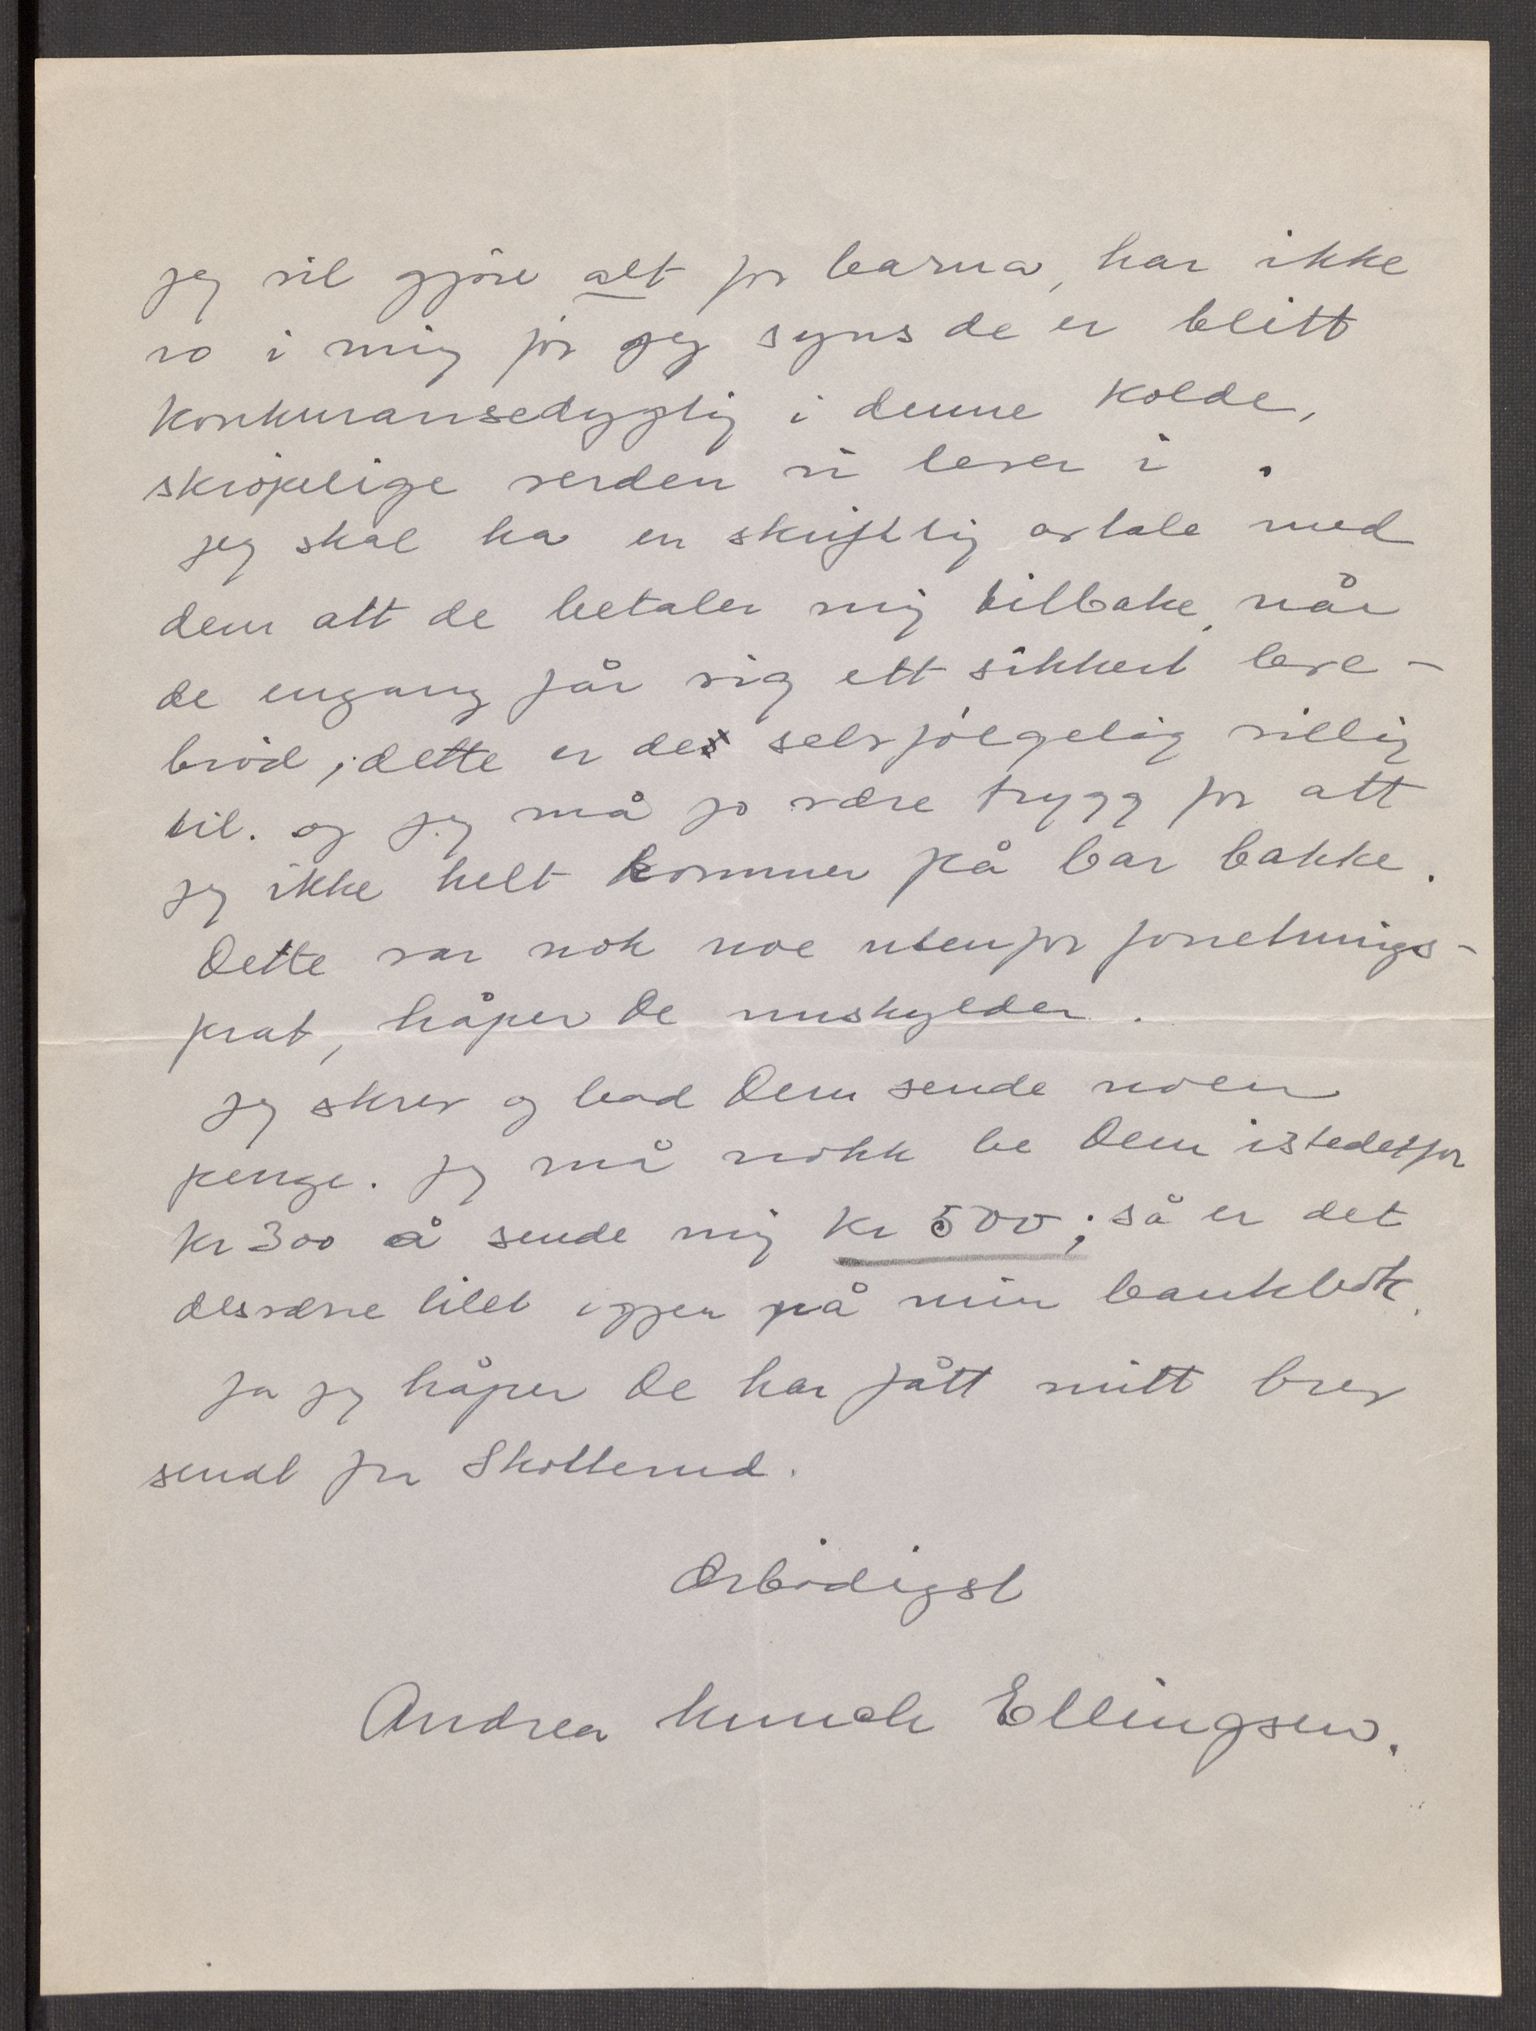 jeg vil gjöre alt for barna, har ikke
ro i mig för jeg syns de er blitt
konkuransedygtig i denne kolde,
skröpelige verden vi lever i.
jeg skal ha en skriftlig avtale med
dem att de betaler mig tilbake, når
de engang får sig ett sikkert leve-
bröd, dette er de selvfölgelig villig
til. og jeg må jo være trygg for att
jeg ikke helt kommer på bar bakke.
Dette var nok noe utenfor forretnings-
prat, håper De unskylder.
jeg skrev og bad Dem sende noen
penge. jeg må nokk be Dem istedetfor
kr 300 å sende mig kr 500; så er det
desværre litet igjen på min bankbok.
Ja jeg håper De har fått mitt brev
sendt fra Skotterud.
Ærbödigst
Andrea Munch Ellingsen.